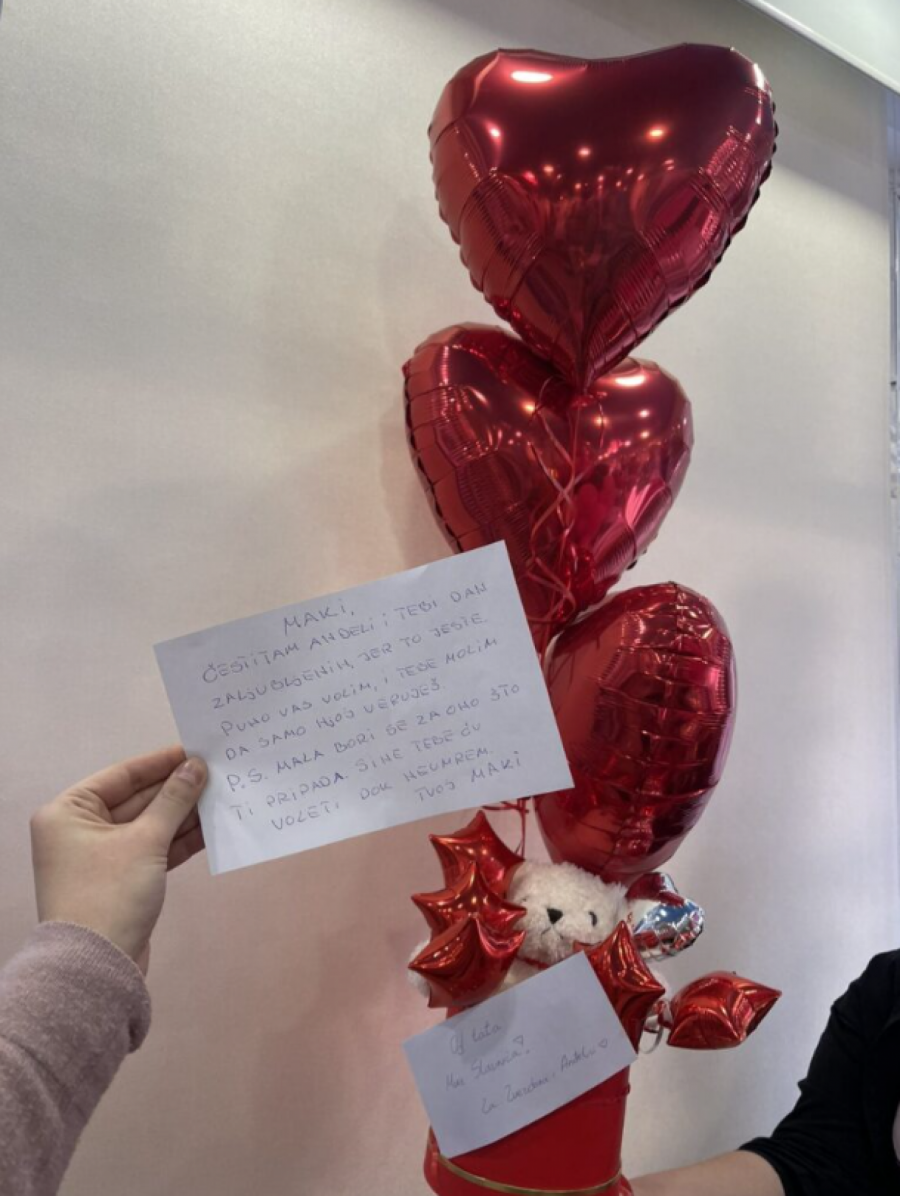 MAKI,
ČESTITAM ANĐELI I TEBI DAN
ZALJUBLJENIH, JER TO JESTE.
PUNO VAS VOLIM, I TEBE MOLIM
DA SAMO NJOJ VERUJEŠ.
P.S. MALA BORI SE ZA ONO ŠTO
TI PRIPADA. SINE TEBE ĆU
VOLETI DOK NEUMREM.
TVOJ MAKI
Od tata
Za